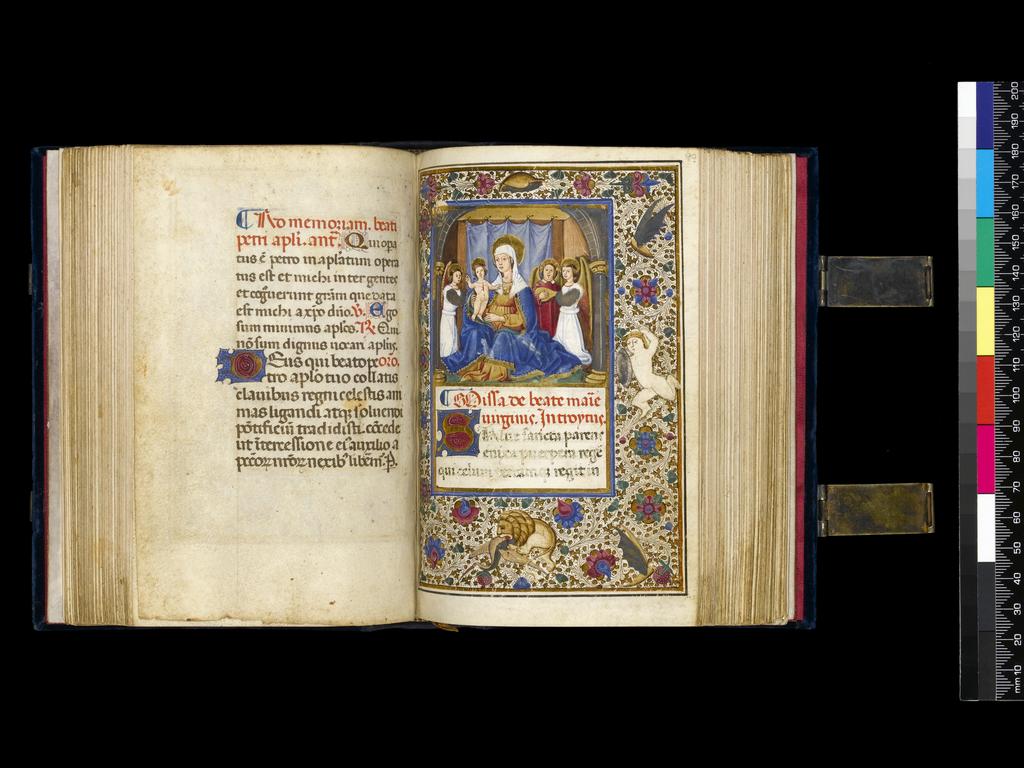 Ad memoriam. beati
petri apli. ant̄. Qui opa
tus ē petro in aplatum opera
tus est et michi inter gentes
et cog̃uerunt grãm que data
est michi a xp̄o dño. V̄. Ego
sum minimus aplo₂. R̃. Qui
nõ sum dignus uocari aplus.
Deus qui beato pe oro.
tro aplo tuo collatis
clauibus regni celestis ani
mas ligandi atq; soluendi
põtificiũ tradidisti. cõcede
ut ĩtercessione ei auxilio a
pecõr nr̃or nexib' libem̃.
Missa de beate marie
uirginis. Introytus.
Salue sancta parens
enixa puerpera regē
qui celum terramq; regit in
200 190 180 170 160 150 140 130 120 110 100 90 80 70 60 50 40 30 20 mm 10